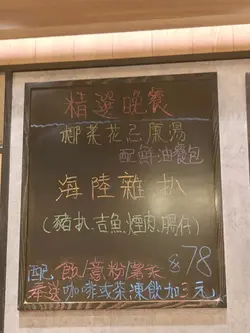 精選晚餐
椰菜花忌廉湯
配鮮油餐包
海陸雜扒
(豬扒.吉魚.煙肉.腸仔)
配 飯/意粉/薯菜 $78
奉送咖啡或茶,凍飲加三元